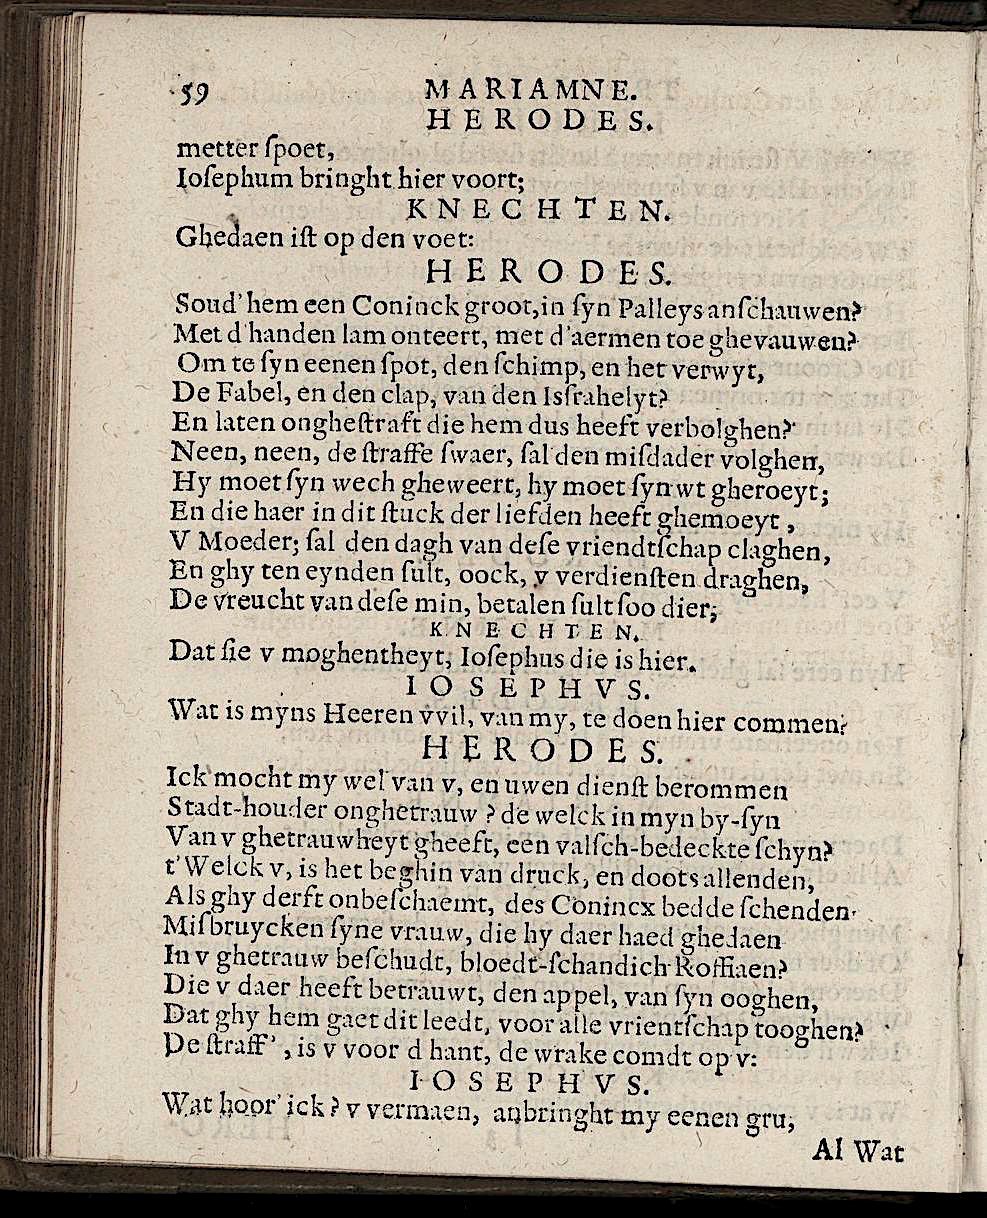 59 MARIAMNE.
HERODES.
metter ſpoet,
Ioſephum bringht hier voort;
KNECHTEN.
Ghedaen iſt op den voet:
HERODES.
Soud' hem een Coninck groot, in ſyn Palleys anſchauwen?
Met d'handen lam onteert, met d'aermen toe ghevauwen?
Om te ſyn eenen ſpot, den ſchimp, en het verwyt,
De Fabel, en den clap, van den Isſrahelyt?
En laten ongheſtraft die hem dus heeft verbolghen?
Neen, neen, de ſtraffe ſwaer, ſal den miſdader volghen,
Hy moet ſyn wech gheweert, hy moet ſyn wt gheroeyt;
En die haer in dit ſtuck der liefden heeft ghemoeyt,
V Moeder; ſal den dagh van deſe vriendtſchap claghen,
En ghy ten eynden ſult, oock, v verdienſten draghen,
De vreucht van deſe min, betalen ſult ſoo dier;
KNECHTEN.
Dat ſie v moghentheyt, Ioſephus die is hier.
IOSEPHVS.
Wat is myns Heeren vvil, van my, te doen hier commen?
HERODES.
Ick mocht my wel van v, en uwen dienſt berommen
Stadt-houder onghetrauw? de welck in myn by-ſyn
Van v ghetrauwheyt gheeft, een valſch-bedeckte ſchyn?
t'Welck v, is het beghin van druck, en doots allenden,
Als ghy derft onbeſchaemt, des Conincx bedde ſchenden
Miſbruycken ſyne vrauw, die hy daer haed ghedaen
In v ghetrauw beſchudt, bloedt-ſchandich Roffiaen?
Die v daer heeft betrauwt, den appel, van ſyn ooghen,
Dat ghy hem gaet dit leedt, voor alle vrientſchap tooghen?
De ſtraff', is v voor d hant, de wrake comdt op v:
IOSEPHVS.
Wat hoor' ick? v vermaen, anbringht my eenen gru,
Al Wat